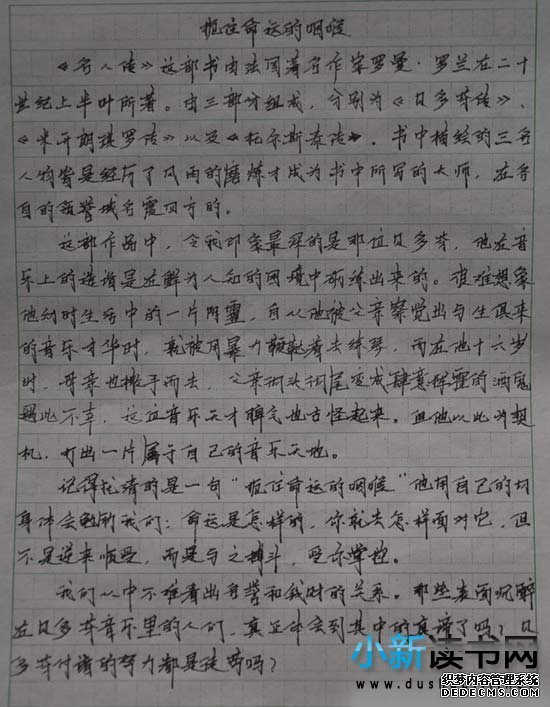 扼住命运的咽喉
《名人传》这部书由法国著名作家罗曼·罗兰在二十
世纪上半叶所著。由三部分组成,分别为《贝多芬传》、
《米开朗琪罗传》以及《托尔斯泰传》。书中描绘的三名
人物皆是经历了风雨的磨炼才成为书中所写的大师,在各
自的领域名震四方的。
这部作品中,令我印象最深的是那位贝多芬,他在音
乐上的造诣是在鲜为人知的困境中砺练出来的。很难想象
他幼时生活中的一片阴霾,自从他被父亲察觉出与生俱来
的音乐才华时,就被用暴力鞭鞑着去练琴,而在他十六岁
时,母亲也撒手而去,父亲彻头彻尾变成肆意挥霍的酒鬼
遇此不幸,这位音乐天才脾气也古怪起来。但他以此为契
机,打出一片属于自己的音乐天地。
记得扎清的是一句“扼住命运的咽喉”他用自己的切
身体会勉励我们:命运是怎样的,你就去怎样面对它,但
不是逆来顺受,而是与之搏斗,
我们从中不难看出名誉和钱财的关系。那些表面沉醉
在贝多芬音乐里的人们,真正体会到其中的真谛了吗?贝
多芬付诸的努力都是徒劳吗?
小新读书网
www.dus
织梦内容管理系统
DEDECMS.COM